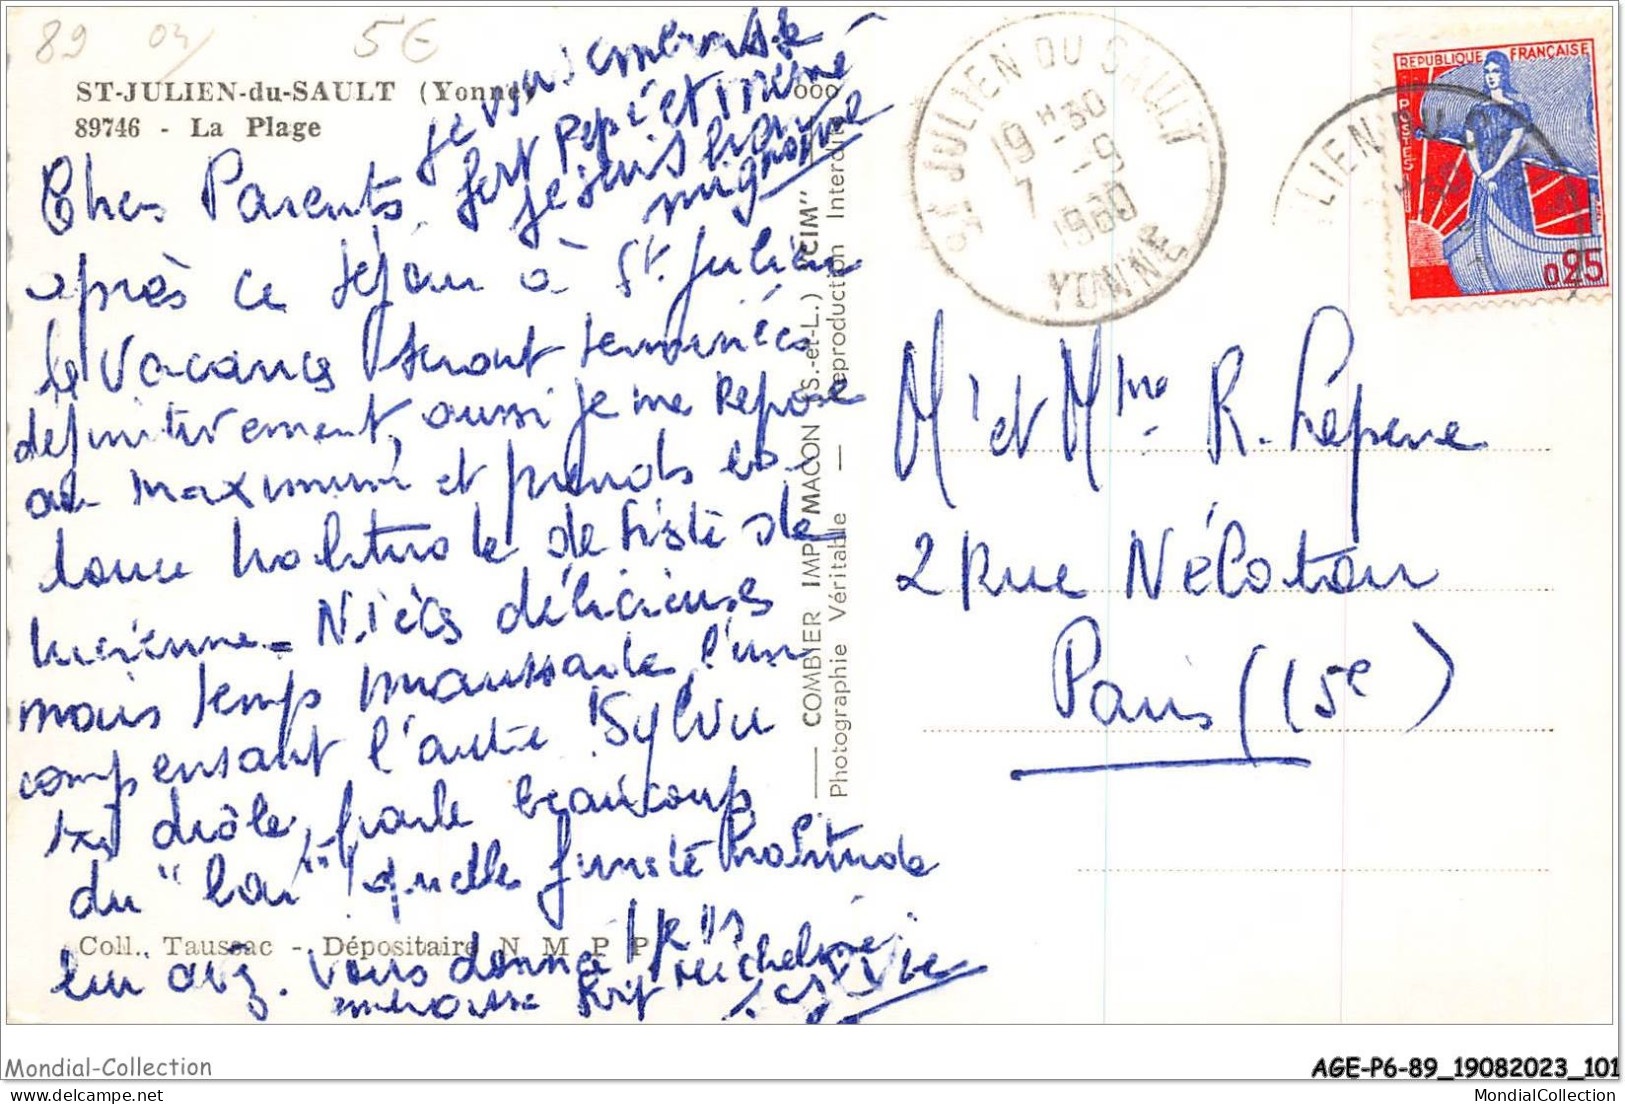 89 03/ 5€
ST-JULIEN-du-SAULT (Yonne)
89746 - La Plage
je vous embrasse
fort pépé et mémé
je suis bien
mignonne
Chers Parents
après ce séjour à St. Julien
les vacances seront terminées
définitivement, aussi je me repose
au maximum et prends
douce habitude de
Lucienne - Nièces délicieuses
mais temps maussade l'un
compensant l'autre. Sylvie
très drôle, parle beaucoup
du " " ! quelle funeste habitude
avez. Vous donne
embrasse fort Micheline
Sylvie
Coll. Taussac - Dépositaire N M P P
COMBIER IMP. MACON (S.-et-L.) "CIM"
Photographie Véritable — Reproduction Interdite
ST JULIEN DU SAULT
19 H 30
7 - 9
1960
YONNE
REPUBLIQUE FRANÇAISE
POSTES
0,25
M. et Mme R. Lepère
2 Rue Nélaton
Paris (15e)
Mondial-Collection
AGE-P6-89_19082023_101
MondialCollection.com